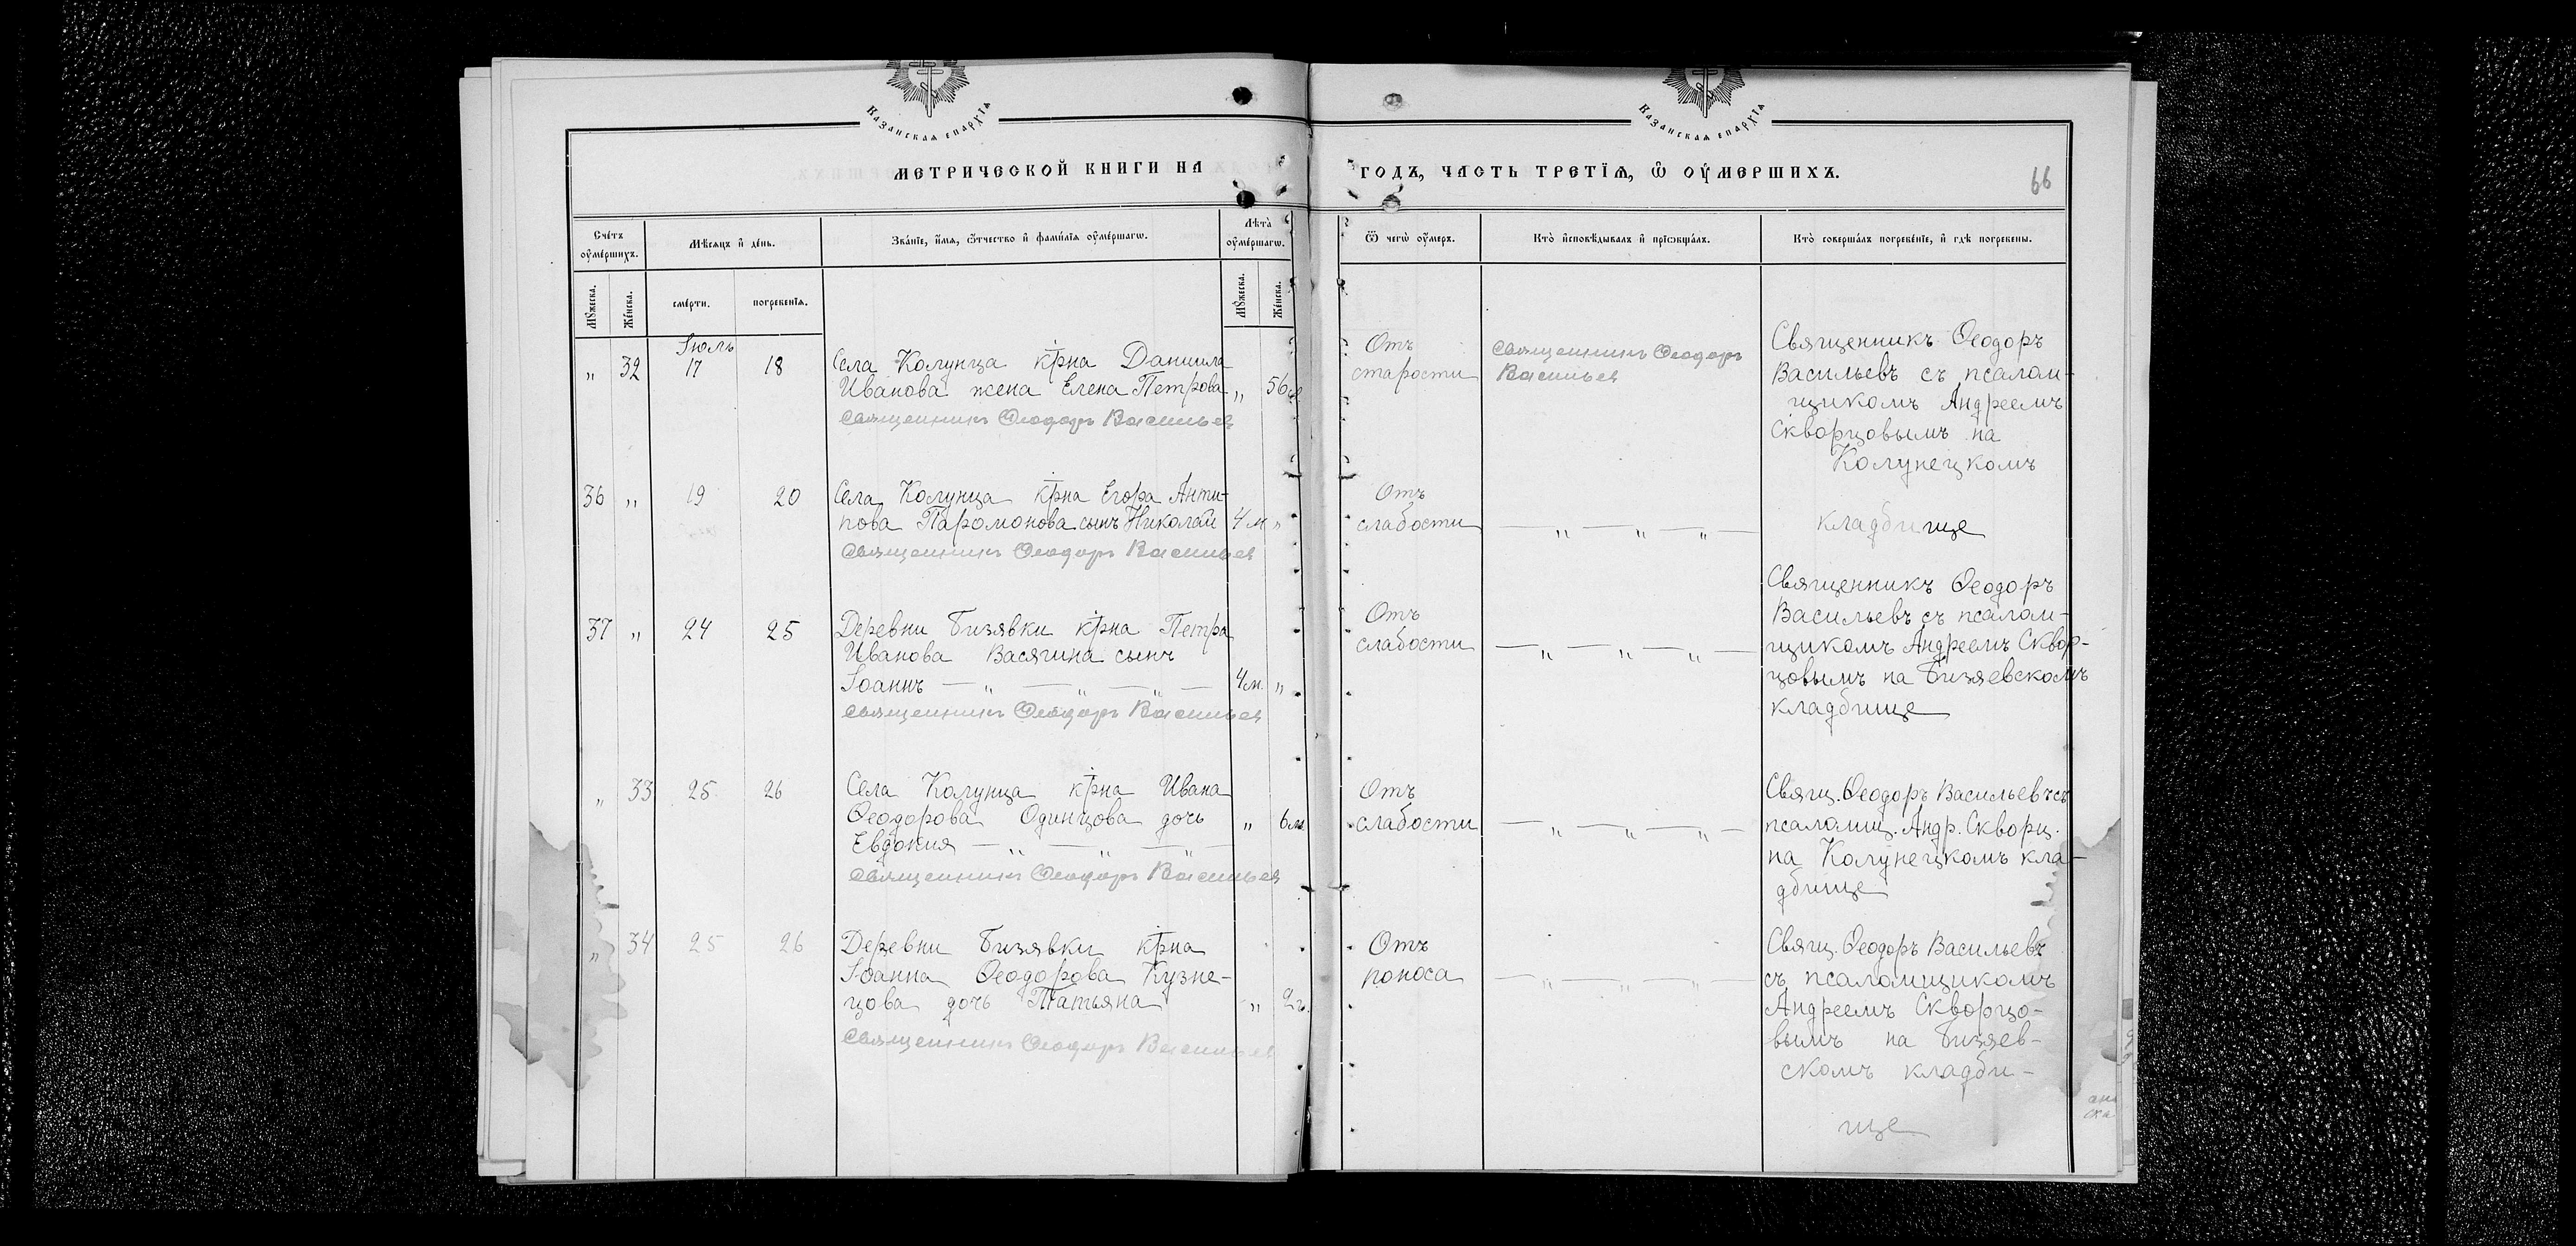 Казанская епархїя
Казанская епархїя
МЕТРИЧЕСКОЙ КНИГИ НА
ГОДЪ, ЧАСТЬ ТРЕТІЯ, Ѡ ОУМЕРШИХЪ.
66
Счетъ оумершихъ.
Мѣсяцъ и день.
Званїе, имя, ѿчество и фамилїя оумершагѡ.
Лѣта оумершагѡ.
Ѿ чегѡ оумеръ.
Кто исповѣдывалъ и прїобщалъ.
Кто совершалъ погребенїе, и гдѣ погребены.
Мужеска.
Женска.
смерти.
погребенїя.
Мужеска.
Женска.
Іюль
„ 32 17 18
Села Колунца крна Даниила
Иванова жена Елена Петрова „ 56
священникъ Ѳеодоръ Васильев
Отъ
старости
священникъ Ѳеодоръ
Васильев
Священникъ Ѳеодоръ
Васильевъ съ псалом-
щикомъ Андреемъ
Скворцовымъ на
Колунецкомъ
кладбище
36 „ 19 20
Села Колунца крна Егора Анти-
пова Паромонова сынъ Николай 4 м „
священникъ Ѳеодоръ Васильев
Отъ
слабости
— „ — „ — „ —
37 „ 24 25
Деревни Бизявки крна Петра
Иванова Васягина сынъ
Іоаннъ — „ — „ — „ — 4 м. „
священникъ Ѳеодоръ Васильев
Отъ
слабости
— „ — „ — „ —
Священникъ Ѳеодоръ
Васильевъ съ псалом-
щикомъ Андреемъ Сквор-
цовымъ на Бизяевскомъ
кладбище
„ 33 25 26
Села Колунца крна Ивана
Ѳеодорова Одинцова дочь „ 6 м
Евдокия — „ — „ — „ —
священникъ Ѳеодоръ Васильев
Отъ
слабости
— „ — „ — „ —
Свящ. Ѳеодоръ Васильевъ съ
псаломщ. Андр. Скворц.
на Колунецкомъ кла-
дбище
„ 34 25 26
Деревни Бизявки крна
Іоанна Ѳеодорова Кузне-
цова дочь Татьяна „ 2 г.
священникъ Ѳеодоръ Васильев
Отъ
поноса
— „ — „ — „ —
Свящ. Ѳеодоръ Васильевъ
съ псаломщикомъ
Андреемъ Скворцо-
вымъ на Бизяев-
скомъ кладби-
ще